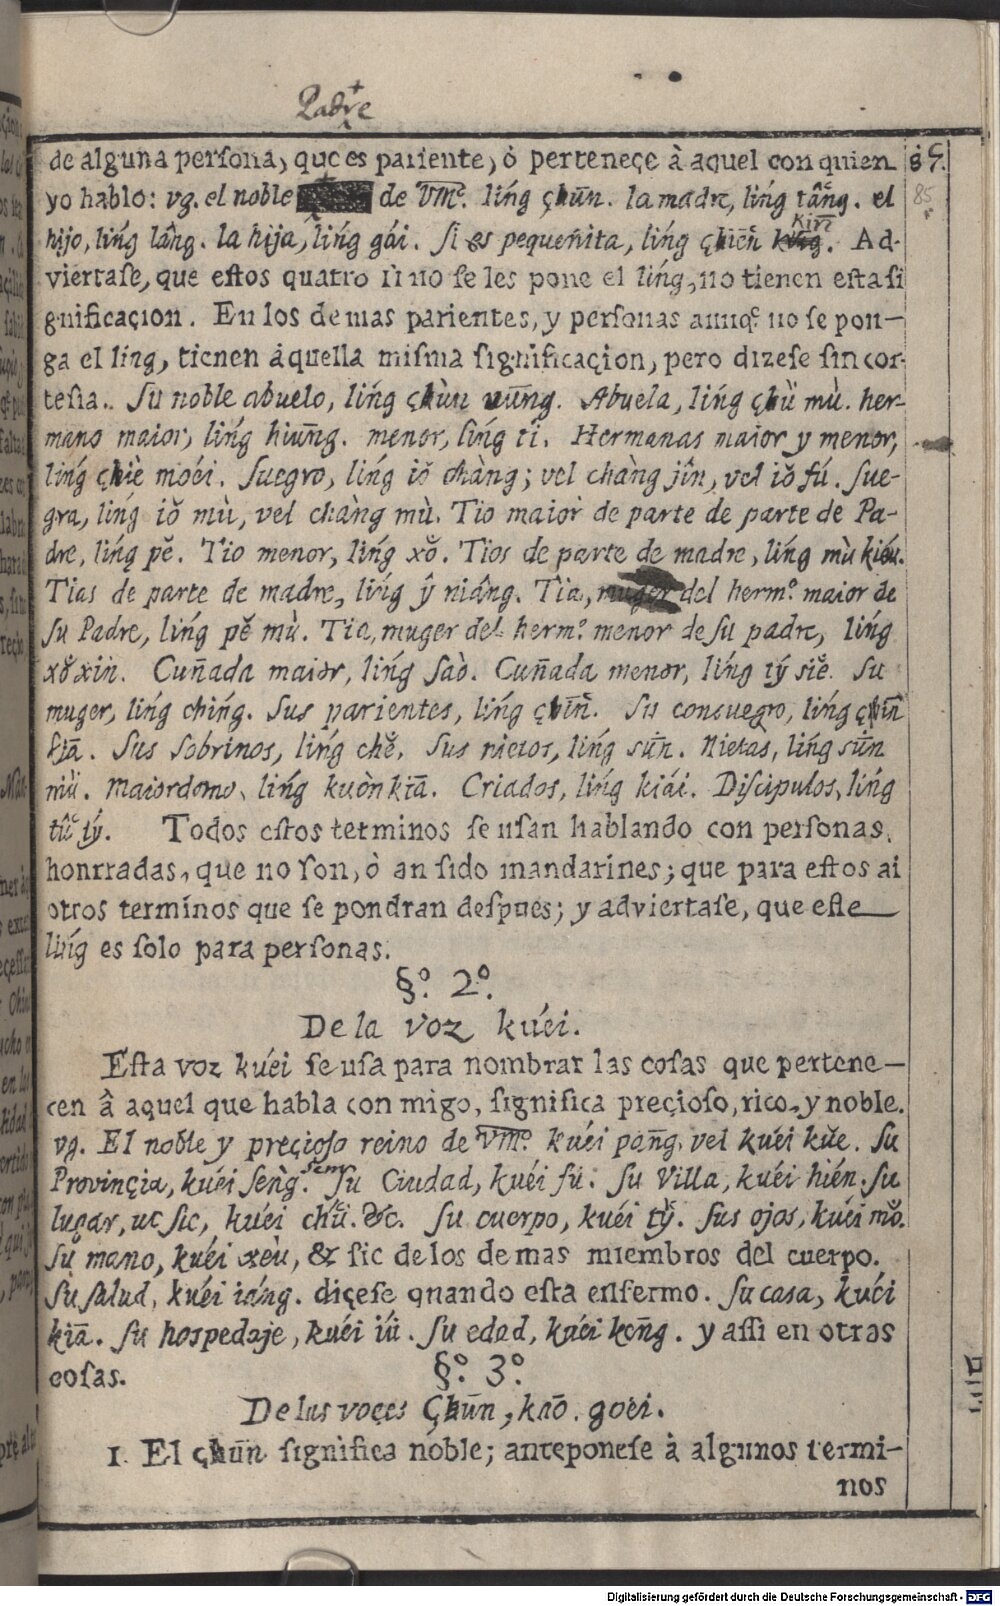 Padre
de alguna persona, que es pariente, ò perteneçe à aquel con quien 85.
yo hablo: vg. el noble de Vm.ᵈ lińg çhūn. la madre, lińg tâng. el 85
hijo, lińg lâng. la hija, lińg gái. si es pequeñita, lińg çhiēn kin. Ad-
viertase, que estos quatro si no se les pone el lińg, no tienen esta si
gnificaçion. En los demas parientes, y personas aunq.ᵉ no se pon-
ga el lińg, tienen aquella misma significaçion, pero dizese sin cor-
tesia. Su noble abuelo, lińg çhùn uūng. Abuela, lińg çhù mù. her-
mano maior, lińg hiūng. menor, lińg tí. Hermanas maior y menor,
lińg çhiè moéi. Suegro, lińg iŏ chàng; vel chàng jîn, vel iŏ fú. Sue-
gra, lińg iŏ mù, vel chàng mù. Tio maior de parte de parte de Pa-
dre, lińg pĕ. Tio menor, lińg xŏ. Tios de parte de madre, lińg mù kiéu.
Tias de parte de madre, lińg ŷ niâng. Tia, muger del herm.º maior de
su Padre, lińg pĕ mù. Tia, muger del herm.º menor de su padre, lińg
xŏ xin. Cuñada maior, lińg saò. Cuñada menor, lińg tý siĕ. Su
muger, lińg chińg. Sus parientes, lińg çhīn. Su consuegro, lińg çhīn
kiā. Sus sobrinos, lińg chĕ. Sus nietos, lińg sūn. Nietas, lińg sūn
niù. Maiordomo, lińg kuòn kiā. Criados, lińg kiái. Disçipulos, lińg
tû tý. Todos estos terminos se usan hablando con personas
honrradas, que no son, ò an sido mandarines; que para estos ai
otros terminos que se pondran despues; y adviertase, que este
lińg es solo para personas.
§.º 2.º
De la voz kuéi.
Esta voz kuéi se usa para nombrar las cosas que pertene-
cen â aquel que habla con migo, significa preçioso, rico, y noble.
vg. El noble y preçioso reino de Vm.ᵈ kuéi pang, vel kuéi kŭe. Su
Provinçia, kuéi sèng. Su Ciudad, kuéi fù. Su Villa, kuéi hién. Su
lugar, ut sic, kuéi chú. &c. Su cuerpo, kuéi tỳ. Sus ojos, kuéi mŏ.
Su mano, kuéi xèu, & sic de los demas miembros del cuerpo.
Su salud, kuéi iáng. diçese quando esta enfermo. Su casa, kuéi
kiā. Su hospedaje, kuéi iú. Su edad, kuéi kēng. y assi en otras
cosas. §.º 3.º
De las voçes Çhūn, kaō. goei.
1. El çhūn significa noble; anteponese à algunos termi-
nos
Digitalisierung gefördert durch die Deutsche Forschungsgemeinschaft - DFG